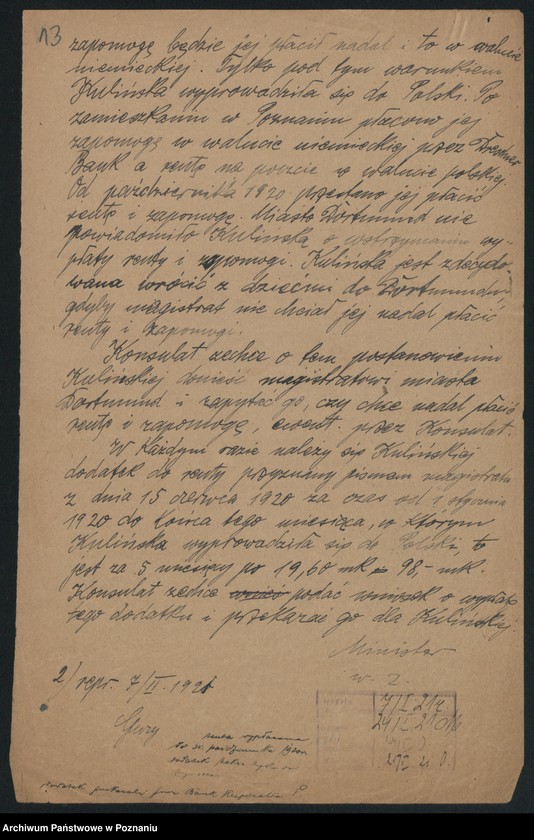 13
zapomogę będzie jej płacił nadal i to w walucie
niemieckiej. Tylko pod tym warunkiem
Kulińska wyprowadziła się do Polski. Po
zamieszkaniu w Poznaniu płacono jej
zapomogę w walucie niemieckiej przez Dresdner
Bank a rentę na poczcie w walucie polskiej.
Od października 1920 przestano jej płacić
rentę i zapomogę. Miasto Dortmund nie
powiadomiło Kulińską o wstrzymaniu wy-
płaty renty i zapomogi. Kulińska jest zdecydo-
wana wrócić z dziećmi do Dortmundu,
gdyby magistrat nie chciał jej nadal płacić
renty i zapomogi.
Konsulat zechce o tem postanowieniu
Kulińskiej donieść magistratowi miasta
Dortmund i zapytać go, czy chce nadal płacić
rentę i zapomogę, ewent. przez Konsulat.
W każdym razie należy się Kulińskiej
dodatek do renty przyznany pismem magistratu
z dnia 15 czerwca 1920 za czas od 1 stycznia
1920 do końca tego miesiąca, w którym
Kulińska wyprowadziła się do Polski, to
jest za 5 miesięcy po 19,60 mk = 98,- mk.
Konsulat zechce podać wniosek o wypłatę
tego dodatku i przekazać go dla Kulińskiej.
Minister
w. z.
2/ repr. 7/II. 1921
7/I 21 r.
24/I 21
renta wypłacona
do 31. października 1920
dodatek
Bank
Archiwum Państwowe w Poznaniu
www.szukajwarchiwach.pl